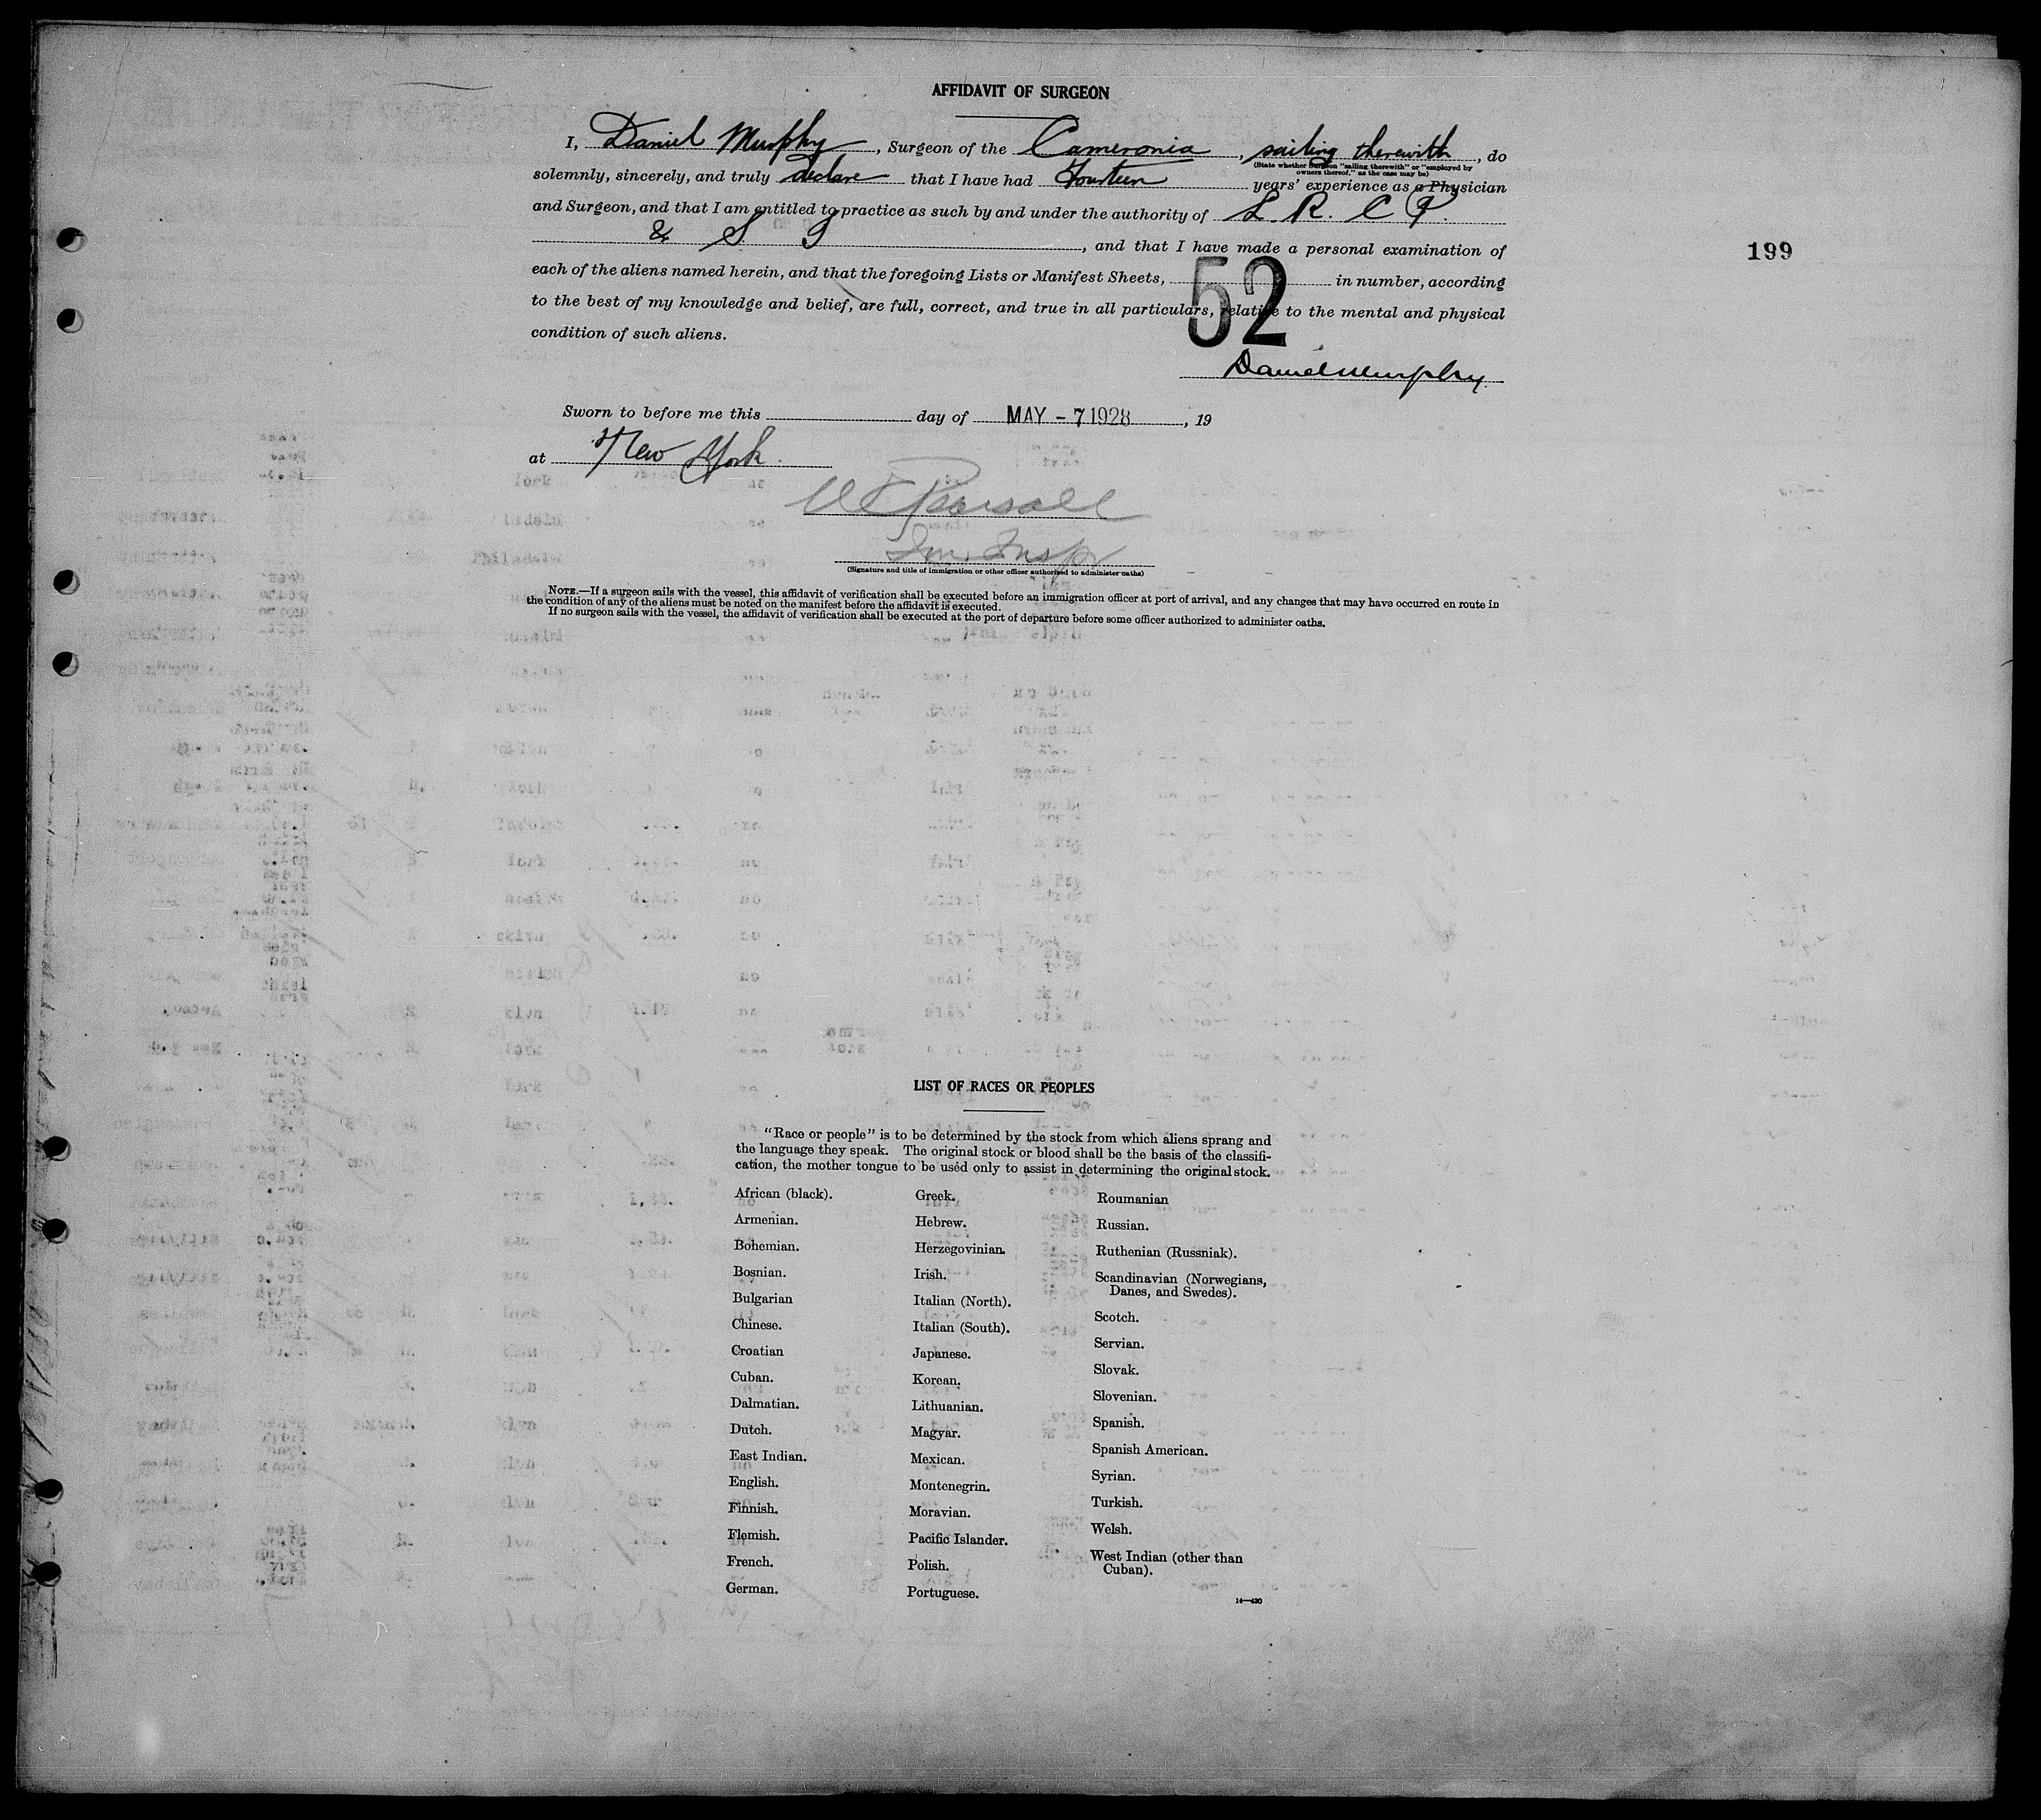 AFFIDAVIT OF SURGEON
I, Daniel Murphy, Surgeon of the Cameronia, sailing therewith, do
(State whether Surgeon "sailing therewith" or "employed by
owners thereof," as the case may be)
solemnly, sincerely, and truly declare that I have had Fourteen years' experience as a Physician
and Surgeon, and that I am entitled to practice as such by and under the authority of L. R. C P.
& S I, and that I have made a personal examination of
199
each of the aliens named herein, and that the foregoing Lists or Manifest Sheets, 52 in number, according
to the best of my knowledge and belief, are full, correct, and true in all particulars, relative to the mental and physical
condition of such aliens.
Daniel Murphy.
Sworn to before me this day of MAY - 7 1928, 19
at New York.
Pearsall
Im. Inspr
(Signature and title of immigration or other officer authorized to administer oaths)
NOTE.—If a surgeon sails with the vessel, this affidavit of verification shall be executed before an immigration officer at port of arrival, and any changes that may have occurred en route in
the condition of any of the aliens must be noted on the manifest before the affidavit is executed.
If no surgeon sails with the vessel, the affidavit of verification shall be executed at the port of departure before some officer authorized to administer oaths.
LIST OF RACES OR PEOPLES
"Race or people" is to be determined by the stock from which aliens sprang and
the language they speak. The original stock or blood shall be the basis of the classifi-
cation, the mother tongue to be used only to assist in determining the original stock.
African (black).
Armenian.
Bohemian.
Bosnian.
Bulgarian
Chinese.
Croatian
Cuban.
Dalmatian.
Dutch.
East Indian.
English.
Finnish.
Flemish.
French.
German.
Greek.
Hebrew.
Herzegovinian.
Irish.
Italian (North).
Italian (South).
Japanese.
Korean.
Lithuanian.
Magyar.
Mexican.
Montenegrin.
Moravian.
Pacific Islander.
Polish.
Portuguese.
Roumanian
Russian.
Ruthenian (Russniak).
Scandinavian (Norwegians,
Danes, and Swedes).
Scotch.
Servian.
Slovak.
Slovenian.
Spanish.
Spanish American.
Syrian.
Turkish.
Welsh.
West Indian (other than
Cuban).
14—430